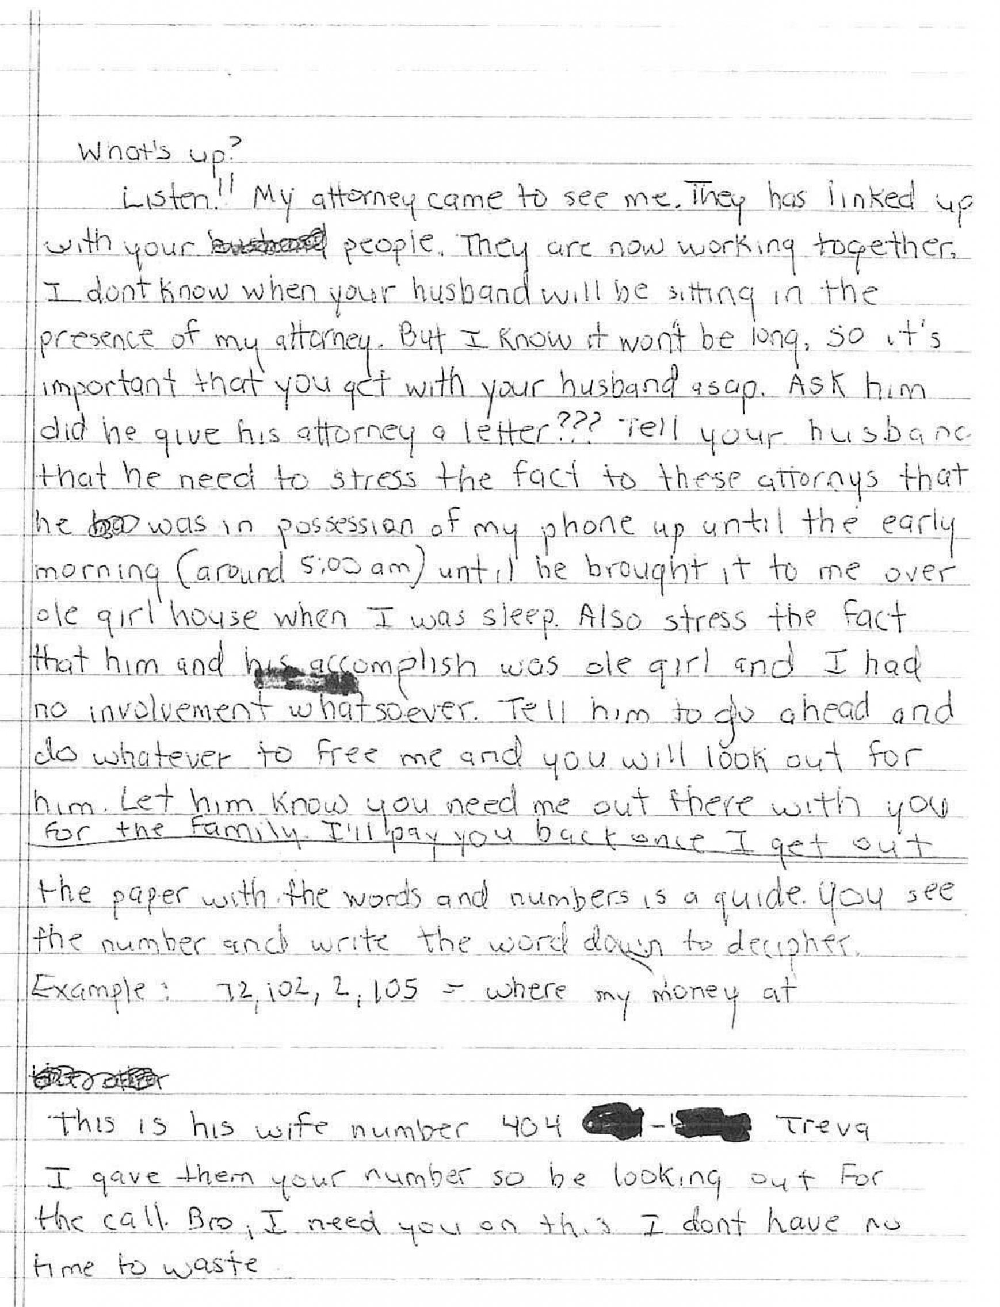 What's up?
Listen!! My attorney came to see me. They has linked up
with your people. They are now working together.
I dont know when your husband will be sitting in the
presence of my attorney. But I know it won't be long, so it's
important that you get with your husband asap. Ask him
did he give his attorney a letter??? Tell your husband
that he need to stress the fact to these attornys that
he was in possession of my phone up until the early
morning (around 5:00 am) until he brought it to me over
ole girl house when I was sleep. Also stress the fact
that him and his accomplish was ole girl and I had
no involvement whatsoever. Tell him to go ahead and
do whatever to free me and you will look out for
him. Let him know you need me out there with you
for the family. I'll pay you back once I get out
the paper with the words and numbers is a guide. you see
the number and write the word down to decipher.
Example: 72, 102, 2, 105 = where my money at
This is his wife number 404 - Treva
I gave them your number so be looking out for
the call. Bro, I need you on this I dont have no
time to waste